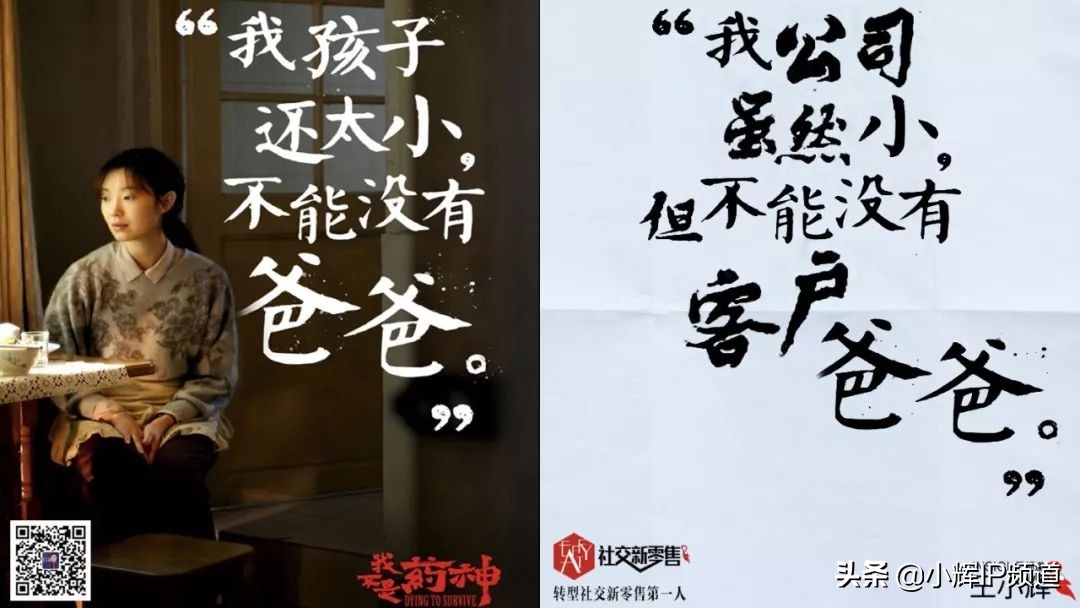 “我孩子
还太小，
不能没有
爸爸。
”
我不是药神
DYING TO SURVIVE
“我公司
虽然小，
但不能没有
客户爸爸。
”
社交新零售
转型社交新零售第一人
头条 @小辉IP频道